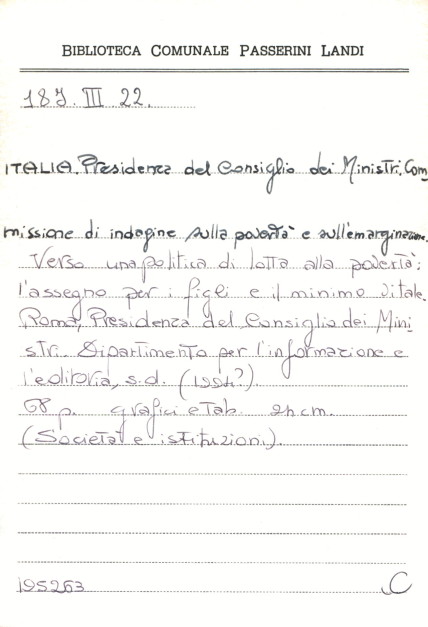 BIBLIOTECA COMUNALE PASSERINI LANDI
187. III 22.
ITALIA. Presidenza del Consiglio dei Ministri. Com
missione di indagine sulla povertà e sull'emarginazione.
Verso una politica di lotta alla povertà:
l'assegno per i figli e il minimo vitale.
Roma, Presidenza del Consiglio dei Mini
stri. Dipartimento per l'informazione e
l'editoria, s.d. (1994?).
68 p. grafici e Tab. 24 cm.
(Società e istituzioni).
195263 C